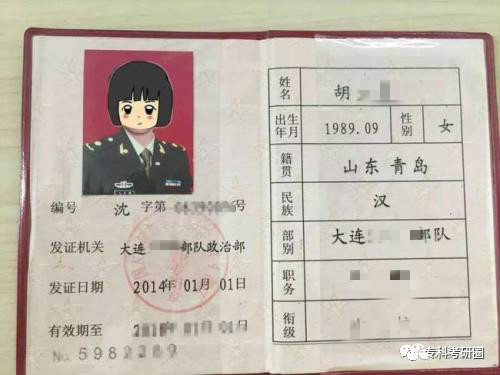 编号 沈 字第 号
发证机关 大连 部队政治部
发证日期 2014年01月01日
有效期至 年01月01日
No.
姓名 胡
出生年月 1989.09 性别 女
籍贯 山东青岛
民族 汉
部别 大连 部队
职务
衔级
专科考研圈